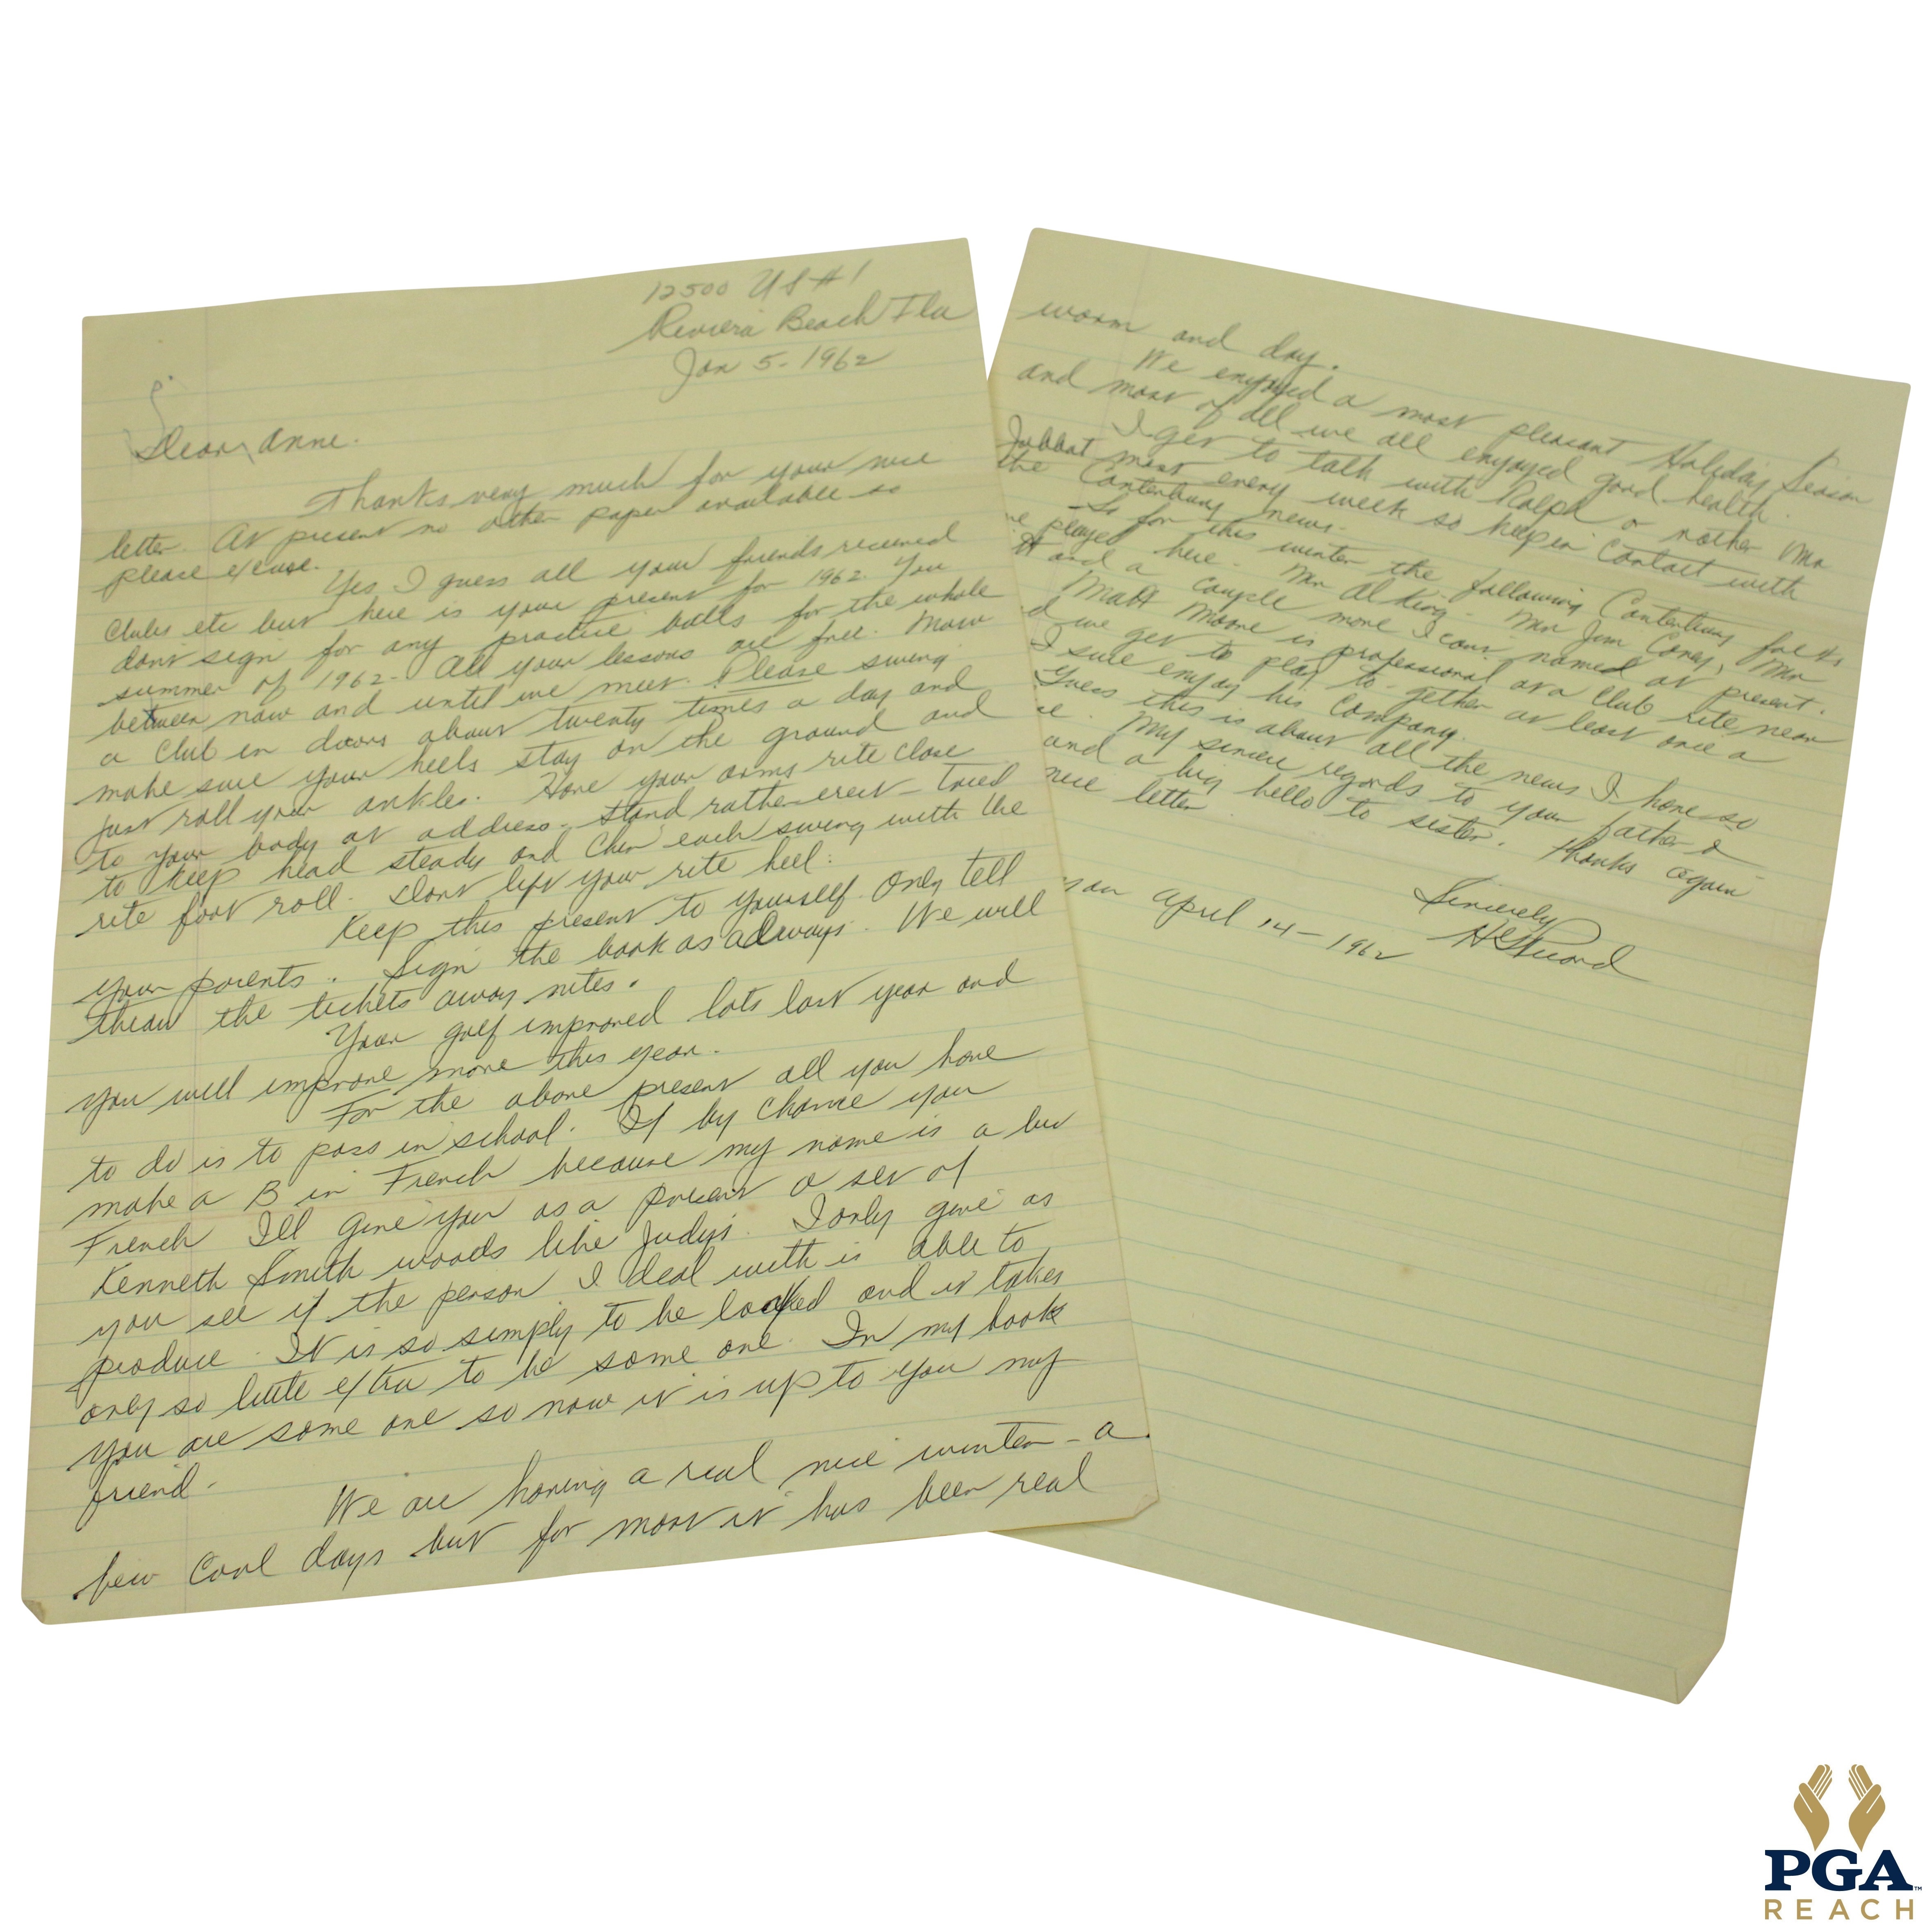 12500 US #1
Riviera Beach Fla
Jan 5 - 1962
Dear Anne.
Thanks very much for your nice
letter. At present no other paper available so
please excuse.
Yes I guess all your friends received
Clubs etc but here is your present for 1962. You
dont sign for any practice balls for the whole
summer of 1962 - All your lessons are free. Now
between now and until we meet. Please swing
a Club in doors about twenty times a day and
make sure your heels stay on the ground and
just roll your ankles. Have your arms rite close
to your body at address - Stand rather erect -
to keep head steady and each swing with the
rite foot roll. Dont lift your rite heel.
Keep this present to yourself. Only tell
your parents. Sign the book as always. We will
throw the tickets away nites.
Your golf improved lots last year and
you will improve more this year.
For the above present all you have
to do is to pass in school. If by chance you
make a B in French because my name is a bit
French Ill give you as a present a set of
Kenneth Smith woods like Judy's. I only give as
you see if the person I deal with is able to
produce. It is so simply to be looked and it takes
only so little extra to be some one. In my book
you are some one so now it is up to you my
friend -
We are having a real nice winter - a
few Cool days but for most it has been real
warm and day.
We enjoyed a most pleasant Holiday Season
and most of all we all enjoyed good health.
I get to talk with Ralph or rather Mr
most every week so keep in Contact with
the Canterbury news -
So for this winter the following Canterbury
played here. Mr Al King - Mr Jim Coney, Mr
and a couple more I cant named at present.
Matt Moore is professional at a Club rite near
we get to play to-gether at least once a
I sure enjoy his Company.
Guess this is about all the news I have so
My sincere regards to your father &
and a big hello to sister. Thanks again
nice letter
Sincerely
H G Picard
April 14 - 1962
PGA
REACH